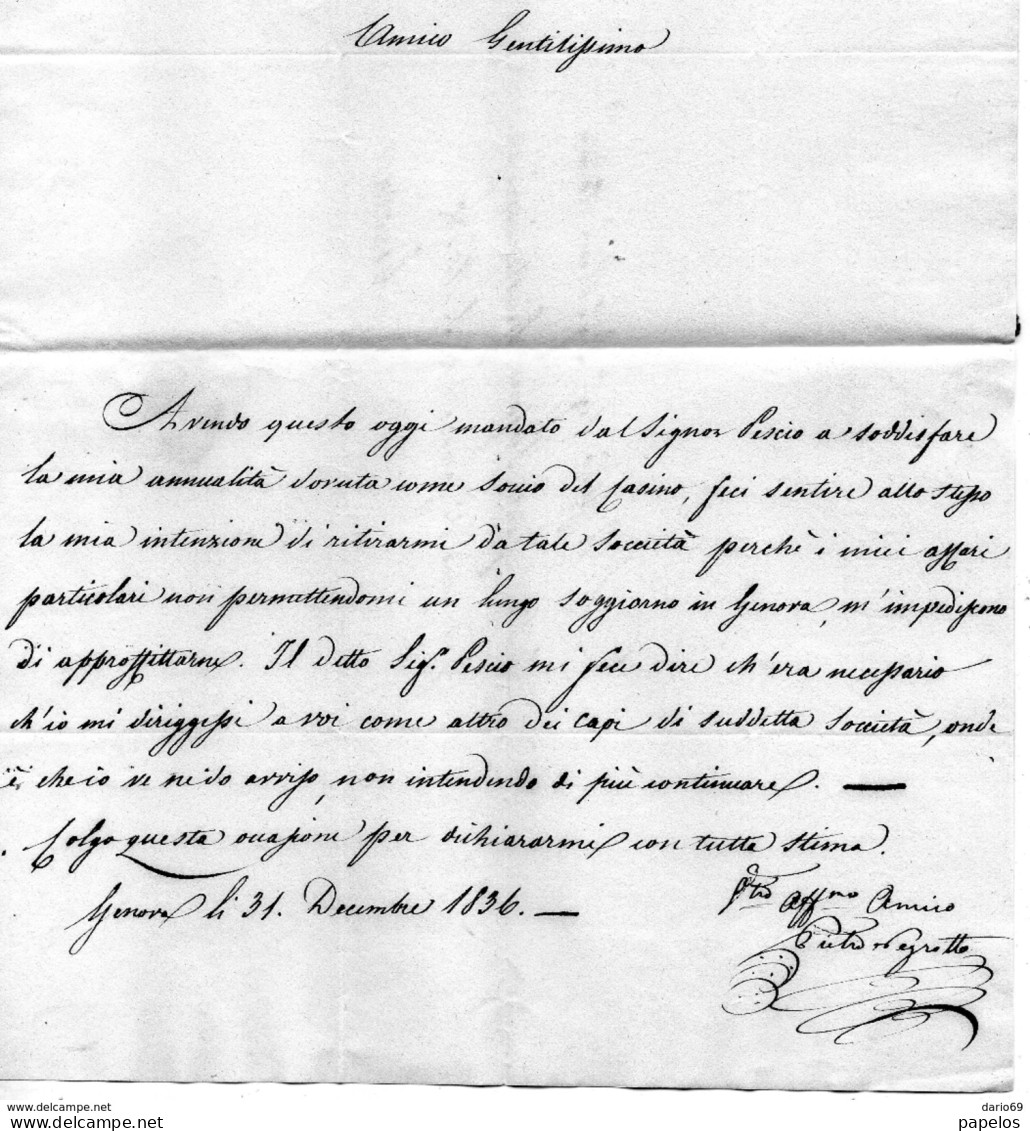 Amico Gentilissimo
Avendo questo oggi mandato dal Signor Pescio a soddisfare
la mia annualità dovuta come Socio del Casino, feci sentire allo stesso
la mia intenzione di ritirarmi da tale Soccietà perchè i miei affari
particolari non permettendomi un lungo soggiorno in Genova, m'impediscono
di approffittarne. Il detto Sigr. Pescio mi fece dire ch'era necessario
ch'io mi diriggessi a voi come altro dei capi di suddetta Soccietà, onde
è, che io ve ne do avviso, non intendendo di più continuare. —
Colgo questa occasione per dichiararmi con tutta stima.
Genova li 31. Decembre 1836. —
Vtro Affmo Amico
Pietro Negrotto
www.delcampe.net
www.delcampe.net
dario69
papelos